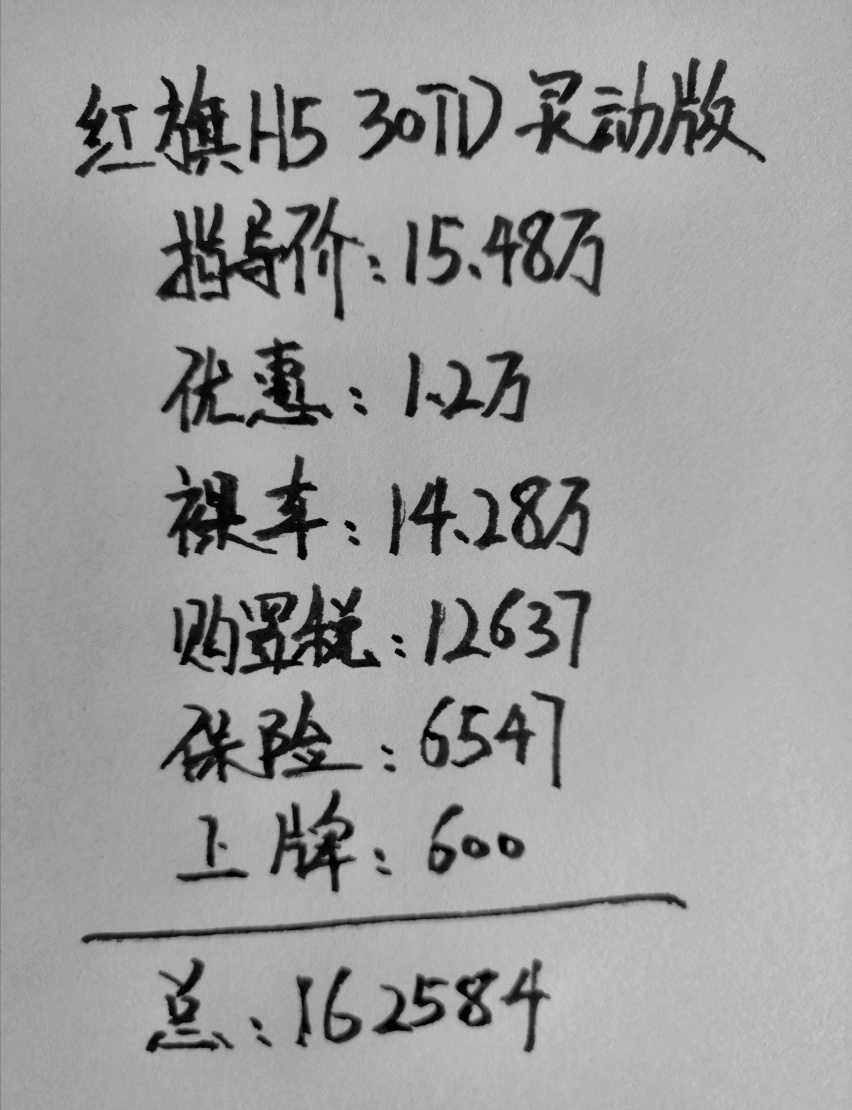 红旗H5 30TD 灵动版
指导价:15.48万
优惠:1.2万
裸车:14.28万
购置税:12637
保险:6547
上牌:600
总:162584